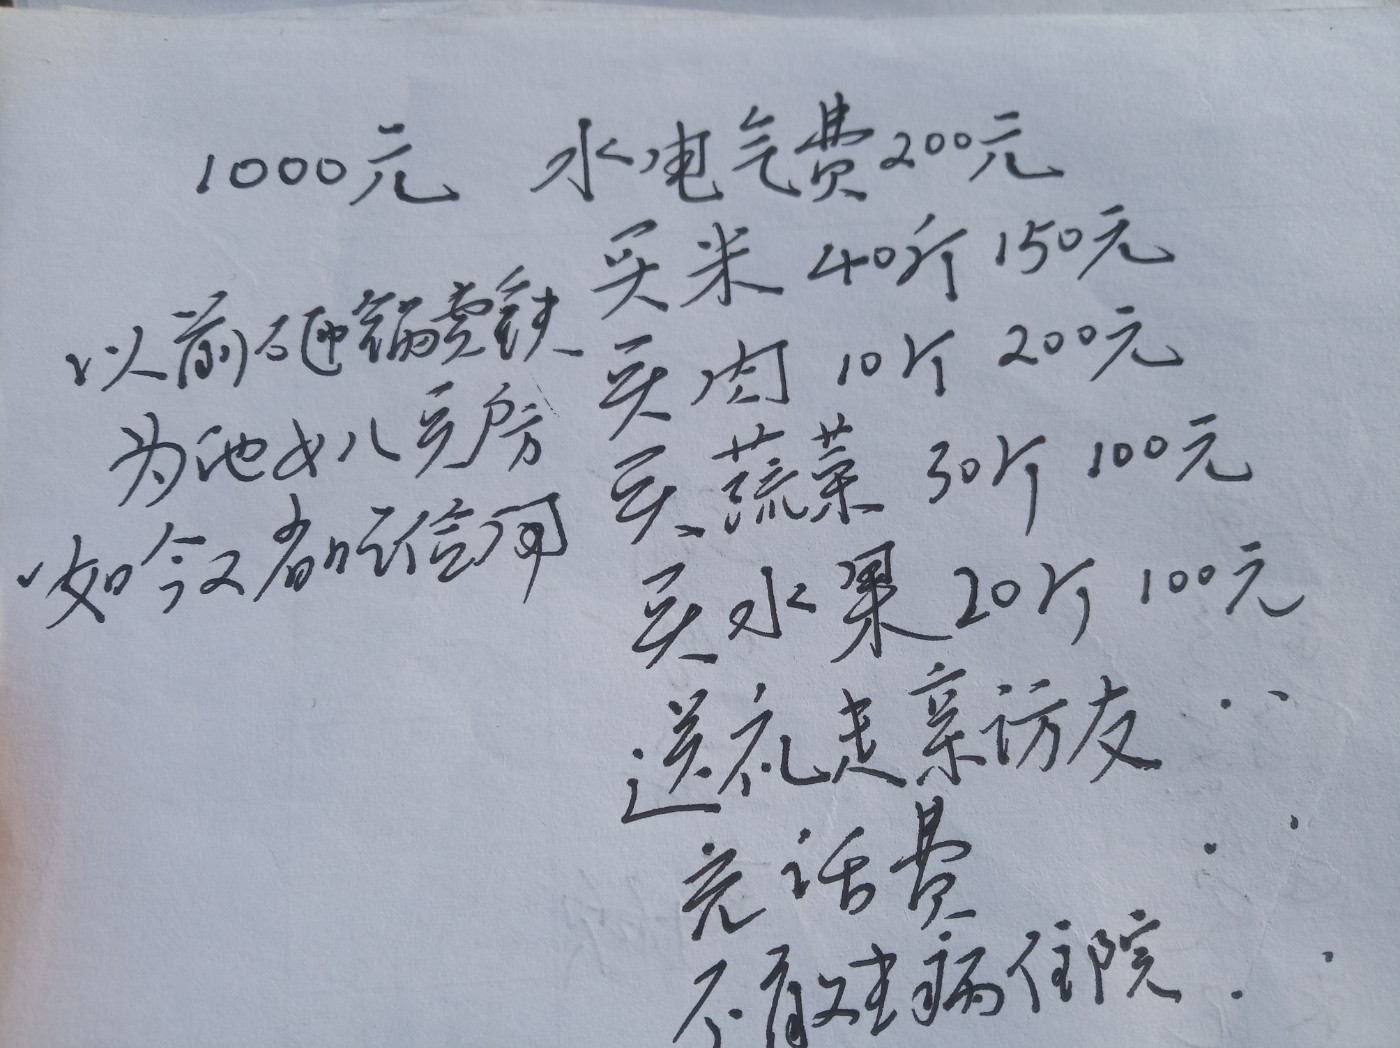 1000元 水电气费200元
买米 40斤 150元
以前砸锅卖铁
买肉 10斤 200元
为他女儿买房
买蔬菜 30斤 100元
如今又都吃信用
买水果 20斤 100元
送礼走亲访友 ...
充话费 ..
不敢生病住院 ..